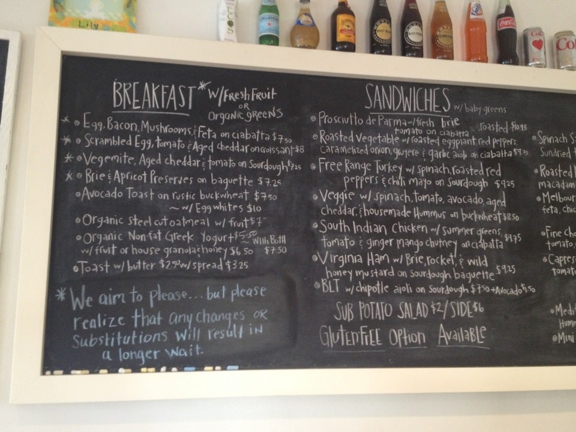 Lily
BREAKFAST* w/ FRESH FRUIT
OR
Organic greens
* Egg, Bacon, Mushrooms, Feta on ciabatta $7.50
* Scrambled Egg, tomato & Aged cheddar on croissant $8
* Vegemite, Aged cheddar & tomato on Sourdough $7.25
* Brie & Apricot Preserves on baguette $7.25
Avocado Toast on rustic buckwheat $7.50
~ w/ Egg whites $10
Organic Steel cut oatmeal w/ fruit $7
Organic Nonfat Greek Yogurt $5.50 With Both
w/ fruit or house granola & honey $6.50 $7.50
Toast w/ butter $2.50 w/ spread $3.25
* We aim to please... but please
realize that any changes or
Substitutions will result in
a longer wait.
SANDWICHES w/ baby greens
Prosciutto de Parma w/ fresh brie
tomato on ciabatta
Roasted Vegetable w/ roasted eggplant, red peppers
caramelized onion, gruyere & garlic aioli on ciabatta
Free Range Turkey w/ spinach, roasted red
peppers & chili mayo on Sourdough $9.25
Veggie w/ spinach, tomato, avocado, aged
cheddar & housemade Hummus on buckwheat $8.50
South Indian Chicken w/ summer greens
tomato & ginger mango chutney on ciabatta $9.75
Virginia Ham w/ Brie, rocket & wild
honey mustard on Sourdough baguette $9.25
BLT w/ chipotle aioli on Sourdough
SUB POTATO SALAD $2/SIDE $6
GLUTEN FREE Option Available
Spinach
Roasted
macadam
Melbour
feta, chic
Fine cho
Caprese
Medi
Hum
Mini